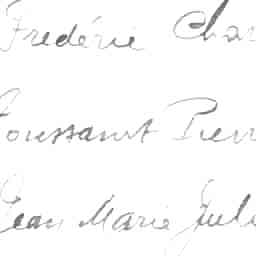 Frédéric Char
Toussaint Pierr
Jean Marie Juli